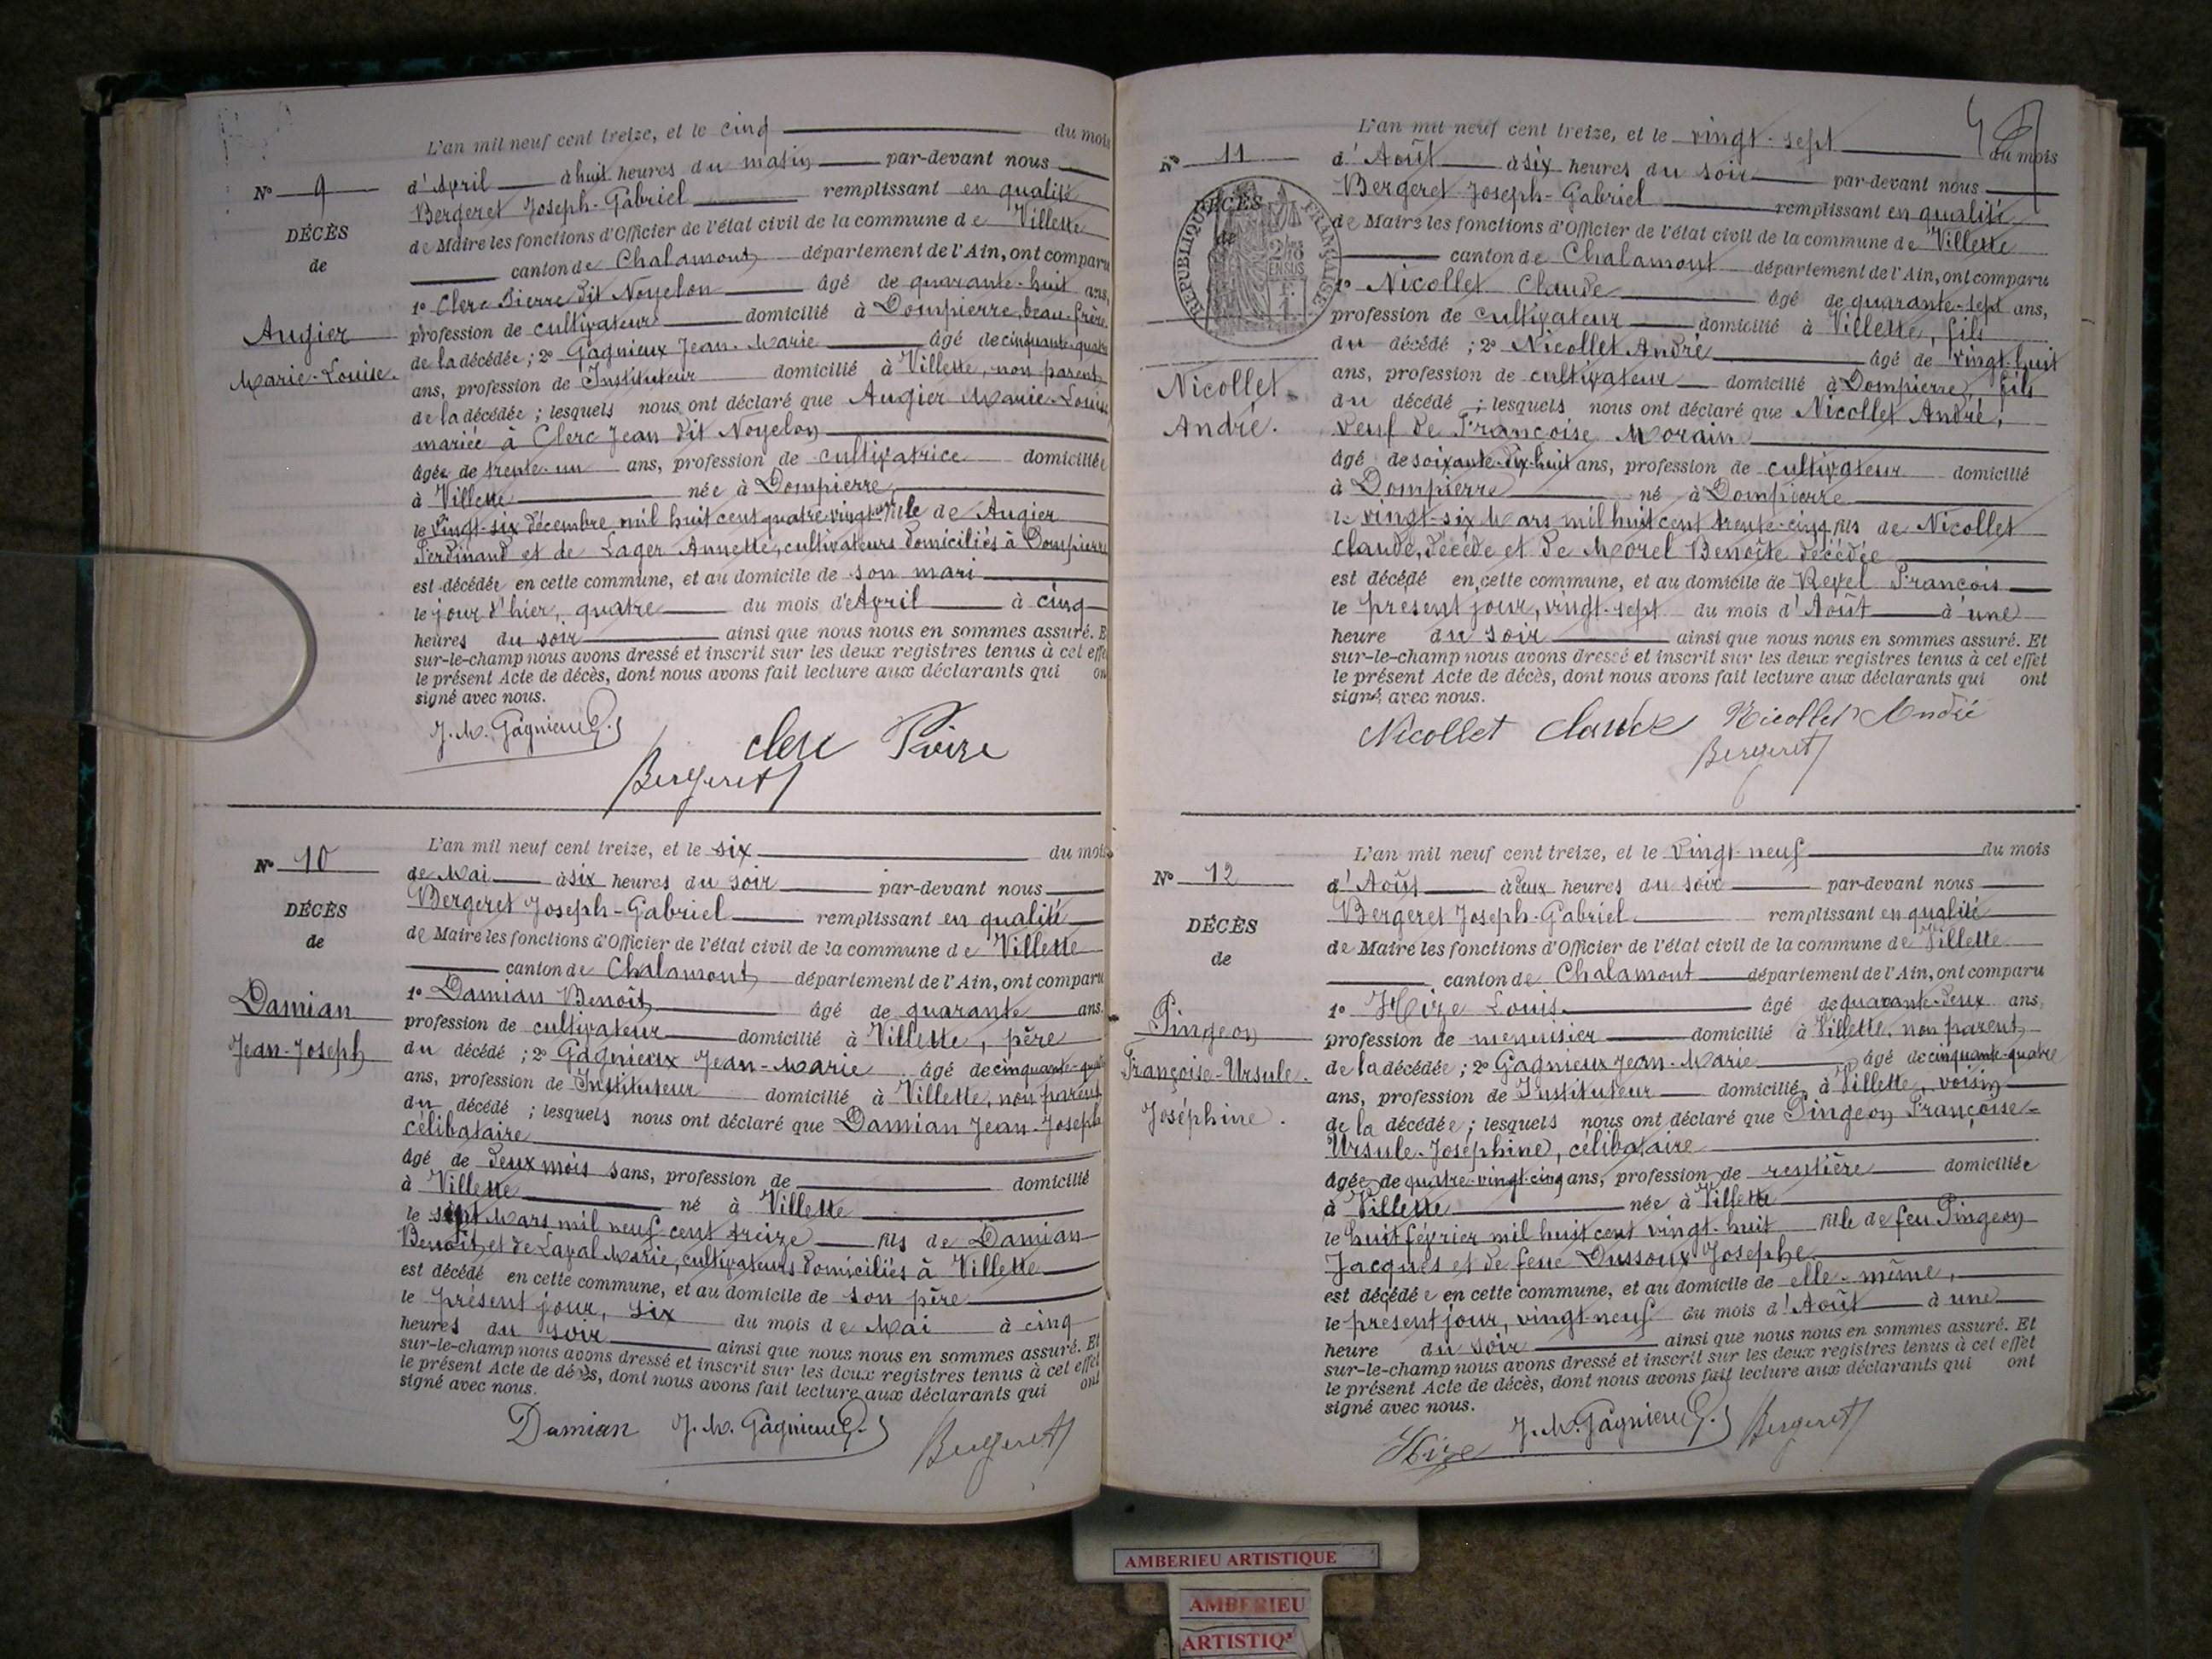 L'an mil neuf cent treize, et le cinq du mois
N° 9
d'Avril à huit heures du matin par-devant nous
Bergeret Joseph-Gabriel remplissant en qualité
DÉCÈS
de Maire les fonctions d'Officier de l'état civil de la commune de Villette
de
canton de Chalamont département de l'Ain, ont comparu
1° Clerc Pierre dit Noyelon âgé de quarante-huit ans,
Augier
profession de cultivateur domicilié à Dompierre, beau-frère
Marie-Louise.
de la décédée ; 2° Gagnieux Jean-Marie âgé de cinquante-quatre
ans, profession de Instituteur domicilié à Villette, non parent
de la décédée ; lesquels nous ont déclaré que Augier Marie-Louise
mariée à Clerc Jean dit Noyelon
âgée de trente-un ans, profession de cultivatrice domiciliée
à Villette née à Dompierre,
le vingt-six décembre mil huit cent quatre-vingt-un fille de Augier
Ferdinand et de Lager Annette, cultivateurs domiciliés à Dompierre
est décédée en cette commune, et au domicile de son mari
le jour d'hier, quatre du mois d'Avril à cinq
heures du soir ainsi que nous nous en sommes assuré. E
sur-le-champ nous avons dressé et inscrit sur les deux registres tenus à cet effe
le présent Acte de décès, dont nous avons fait lecture aux déclarants qui on
signé avec nous.
J. M. Gagnieux
clerc Pierre
Bergeret
L'an mil neuf cent treize, et le six du mois
N° 10
de Mai à six heures du soir par-devant nous
Bergeret Joseph-Gabriel remplissant en qualité
DÉCÈS
de Maire les fonctions d'Officier de l'état civil de la commune de Villette
de
canton de Chalamont département de l'Ain, ont comparu
1° Damian Benoît âgé de quarante ans
Damian
profession de cultivateur domicilié à Villette, père
Jean-Joseph
du décédé ; 2° Gagnieux Jean-Marie âgé de cinquante-quatre
ans, profession de Instituteur domicilié à Villette, non parent
du décédé ; lesquels nous ont déclaré que Damian Jean-Joseph
célibataire
âgé de deux mois sans, profession de domicilié
à Villette né à Villette
le sept Mars mil neuf cent treize fils de Damian
Benoît et de Laval Marie, cultivateurs domiciliés à Villette
est décédé en cette commune, et au domicile de son père
le présent jour, six du mois de Mai à cinq
heures du soir ainsi que nous nous en sommes assuré. Et
sur-le-champ nous avons dressé et inscrit sur les deux registres tenus à cet effet
le présent Acte de décès, dont nous avons fait lecture aux déclarants qui ont
signé avec nous.
Damian J. M. Gagnieux Bergeret
L'an mil neuf cent treize, et le vingt-sept du mois
N° 11
d'Août à six heures du soir par-devant nous
Bergeret Joseph-Gabriel remplissant en qualité
DÉCÈS
de
RÉPUBLIQUE FRANÇAISE
de Maire les fonctions d'Officier de l'état civil de la commune de Villette
canton de Chalamont département de l'Ain, ont comparu
1° Nicollet Claude âgé de quarante-sept ans,
profession de cultivateur domicilié à Villette, fils
du décédé ; 2° Nicollet André âgé de vingt-huit
Nicollet
ans, profession de cultivateur domicilié à Dompierre, fils
André.
du décédé ; lesquels nous ont déclaré que Nicollet André,
veuf de Françoise Morain
âgé de soixante-dix-huit ans, profession de cultivateur domicilié
à Dompierre né à Dompierre
le vingt-six Mars mil huit cent trente-cinq fils de Nicollet
Claude, décédé et de Morel Benoîte décédée
est décédé en cette commune, et au domicile de Revel François
le présent jour, vingt-sept du mois d'Août à une
heure du soir ainsi que nous nous en sommes assuré. Et
sur-le-champ nous avons dressé et inscrit sur les deux registres tenus à cet effet
le présent Acte de décès, dont nous avons fait lecture aux déclarants qui ont
signé avec nous.
Nicollet Claude Nicollet André
Bergeret
L'an mil neuf cent treize, et le vingt-neuf du mois
N° 12
d'Août à deux heures du soir par-devant nous
Bergeret Joseph-Gabriel remplissant en qualité
DÉCÈS
de Maire les fonctions d'Officier de l'état civil de la commune de Villette
de
canton de Chalamont département de l'Ain, ont comparu
1° Hize Louis âgé de quarante-deux ans,
Pingeon
profession de menuisier domicilié à Villette, non parent
Françoise-Ursule.
de la décédée ; 2° Gagnieux Jean-Marie âgé de cinquante-quatre
ans, profession de Instituteur domicilié à Villette, voisin
Joséphine.
de la décédée ; lesquels nous ont déclaré que Pingeon Françoise-
Ursule-Joséphine, célibataire
âgée de quatre-vingt-cinq ans, profession de rentière domiciliée
à Villette née à Villette
le huit février mil huit cent vingt-huit fille de feu Pingeon
Jacques et de feue Dussoux Josephe
est décédée en cette commune, et au domicile de elle-même,
le présent jour, vingt-neuf du mois d'Août à une
heure du soir ainsi que nous nous en sommes assuré. Et
sur-le-champ nous avons dressé et inscrit sur les deux registres tenus à cet effet
le présent Acte de décès, dont nous avons fait lecture aux déclarants qui ont
signé avec nous.
Hize J. M. Gagnieux Bergeret
AMBERIEU ARTISTIQUE
AMBERIEU
ARTISTIQ